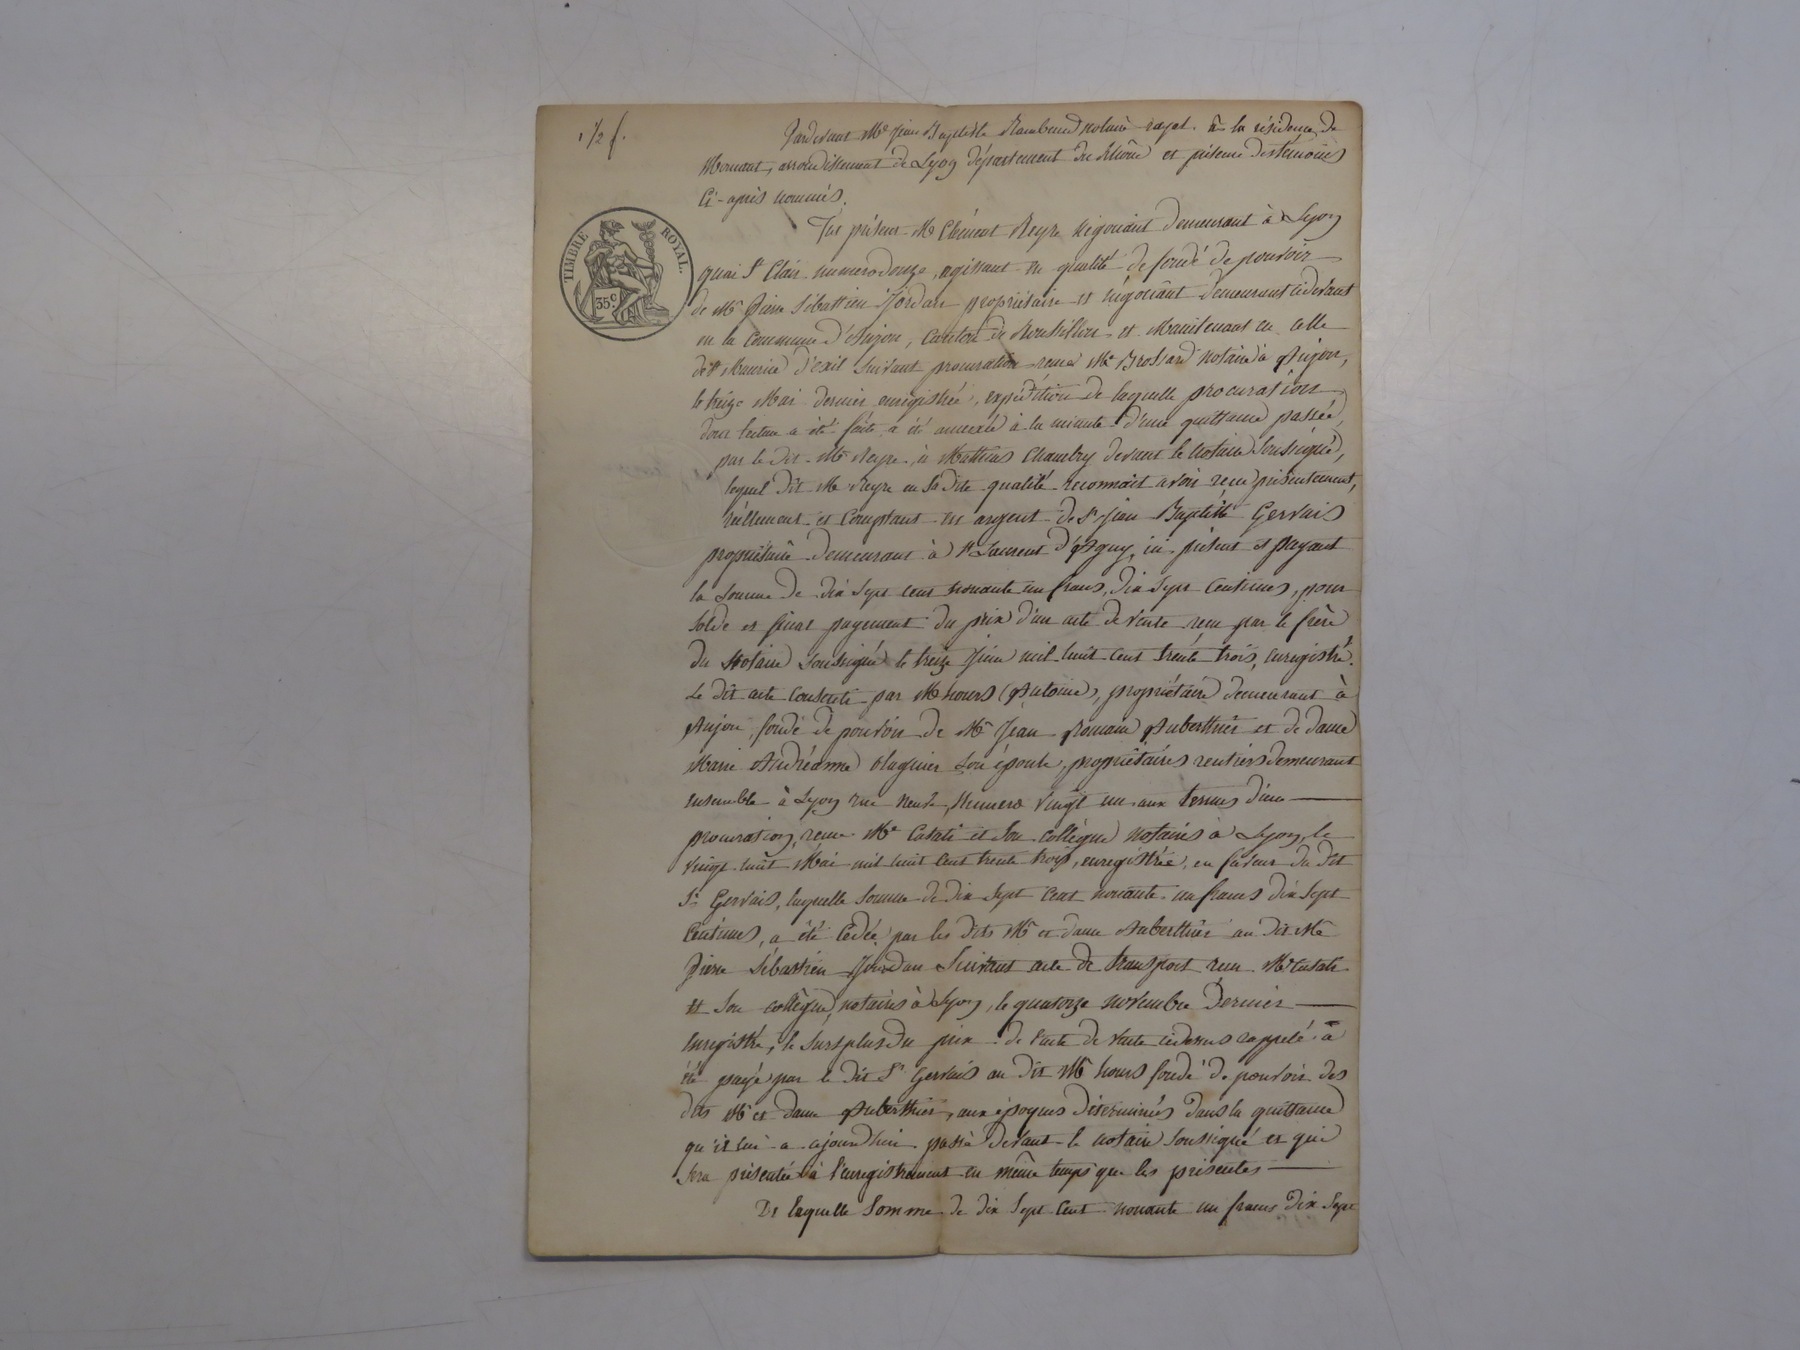 1 1/2 f.
TIMBRE ROYAL.
35c
Pardevant Me Jean Baptiste Rambaud notaire royal à la résidence de
Mornant, arrondissement de Lyon département du Rhône et présence des témoins
Ci-après nommés.
Fut présent Mr Clément Reyre négociant demeurant à Lyon
quai St Clair numero douze, agissant en qualité de fondé de pouvoir
de Mr Pierre Sébastien Jordan propriétaire et négociant demeurant cidevant
en la commune d'Anjou, canton de Roussillon et maintenant en celle
de St Maurice d'exil suivant procuration reçue Me Brossard notaire à Anjou,
le treize Mai dernier enregistrée, expédition de laquelle procuration
dont lecture a été faite a été annexée à la minute d'une quittance passée
par le dit Mr Reyre à Mathieu Chambry devant le notaire soussigné,
lequel dit Mr Reyre en sa dite qualité reconnait avoir reçu présentement,
réellement et comptant en argent de Sr Jean Baptiste Gervais
propriétaire demeurant à St Laurent d'Agny, ici présent et payant
la somme de dix sept cent nonante un francs, dix sept centimes, pour
solde et final payement du prix d'un acte de vente reçu par le frère
du Notaire soussigné le treize Juin mil huit cent trente trois, enregistré.
Le dit acte consenti par Mr hours (Antoine), propriétaire demeurant à
Anjou, fondé de pouvoir de Mr Jean Romain Auberthier et de dame
Marie Andréanne son épouse, propriétaires rentiers demeurant
ensemble à Lyon rue neuve, numero vingt un aux termes d'une
procuration reçue Me Casati et son collègue notaires à Lyon, le
vingt huit Mai mil huit cent trente trois, enregistrée, en faveur du dit
Sr Gervais, laquelle somme de dix sept cent nonante un francs dix sept
centimes, a été cédée par les dits Mr et dame Auberthier au dit Mr
Pierre Sébastien Jourdan suivant acte de transport reçu Me Casati
et son collègue, notaires à Lyon, le quatorze novembre dernier
enregistré, le surplus du prix de l'acte de vente cidessus rappelé a
été payé par le dit Sr Gervais au dit Mr hours fondé de pouvoir des
dits Mr et dame Auberthier, aux époques déterminées dans la quittance
qu'il lui a ajourdhui passé devant le notaire soussigné et qui
sera présentée à l'enregistrement en même temps que les présentes
De laquelle somme de dix sept cent nonante un francs dix sept